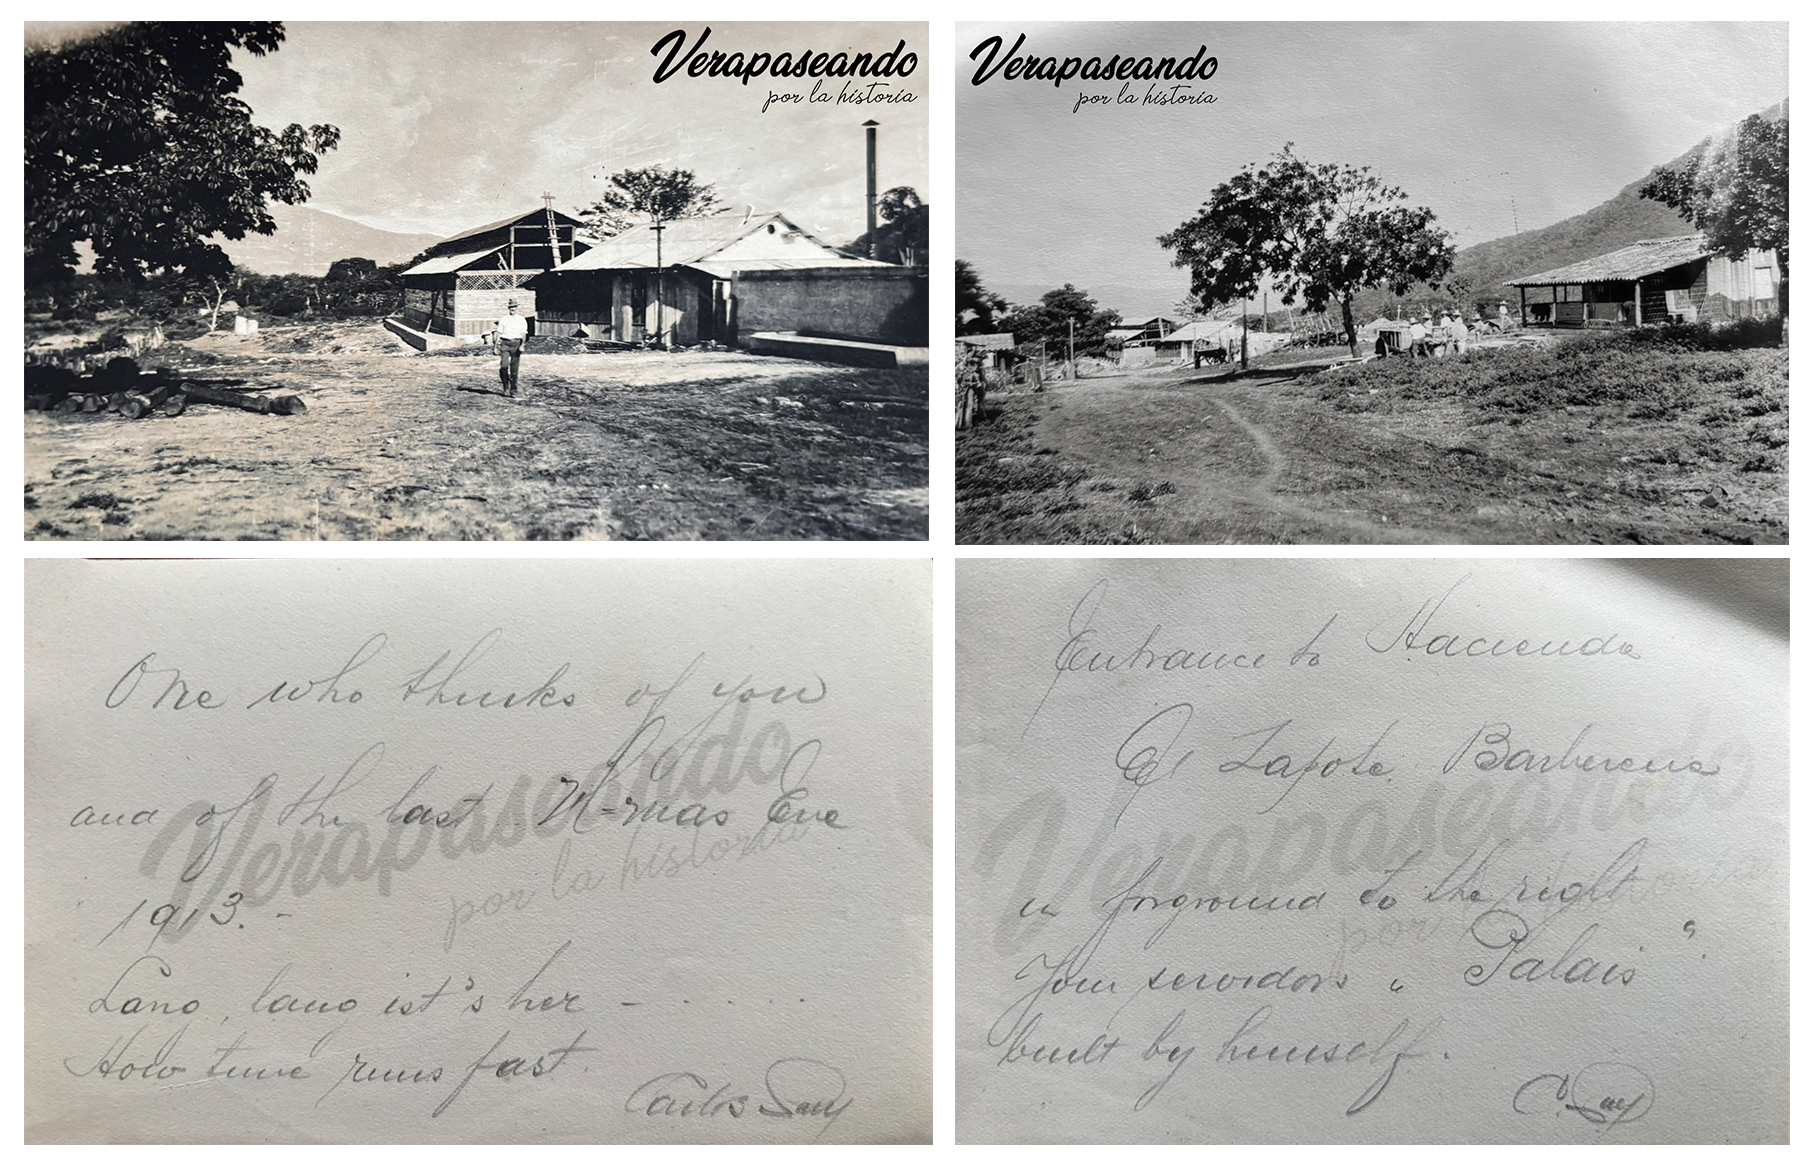 Verapaseando
por la historia
Verapaseando
por la historia
One who thinks of you
and of the last X-mas Eve
1913. -
Lang, lang ist's her - . . . . .
How time runs fast.
Carlos
Verapaseando
por la historia
Entrance to Hacienda
El Zapote Barberena
in forground to the right
Your servidors " Palais "
built by himself.
C.
Verapaseando
por